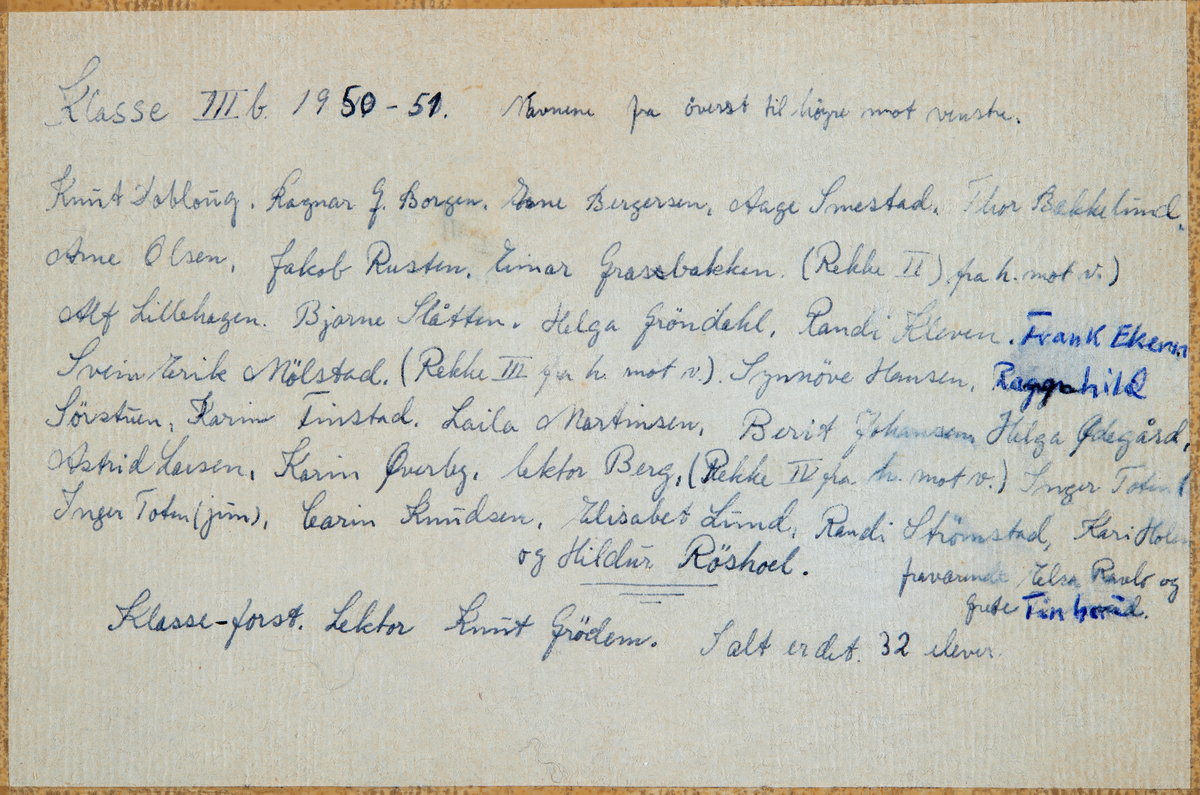 Klasse III b. 1950-51. Navnene fra överst til högre mot venstre.
Knut Dobloug. Ragnar G. Borgen. Arne Bergersen, Aage Smestad. Thor Bakkelund.
Arne Olsen, Jakob Rusten, Einar Grassbakken. (Rekke II) fra h. mot v.)
Alf Lillehagen. Bjarne Slåtten. Helga Gröndahl, Randi Kleven. Frank Ekern
Svein Erik Mölstad. (Rekke III fra h. mot v.). Synnöve Hansen, Raggnhild
Sörstuen, Karin Finstad. Laila Martinsen, Berit Johansen Helga Ødegård,
Astrid Larsen, Karin Øverby, lektor Berg, (Rekke IV fra h. mot v.) Inger Toten
Inger Toten (jun), Carin Knudsen, Elisabet Lund, Randi Strömstad, Kari Holen
og Hildur Röshoel. fraværende Else Ravlo og
Grete
Klasse-forst. Lektor Knut Grödem. I alt er det. 32 elever.